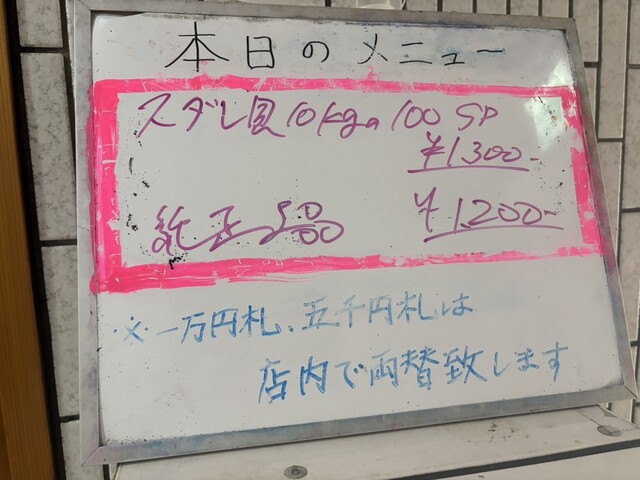 本日のメニュー
スダレ貝10kgの100SP
¥1300-
純正 500 ¥1,200-
※一万円札、五千円札は
店内で両替致します